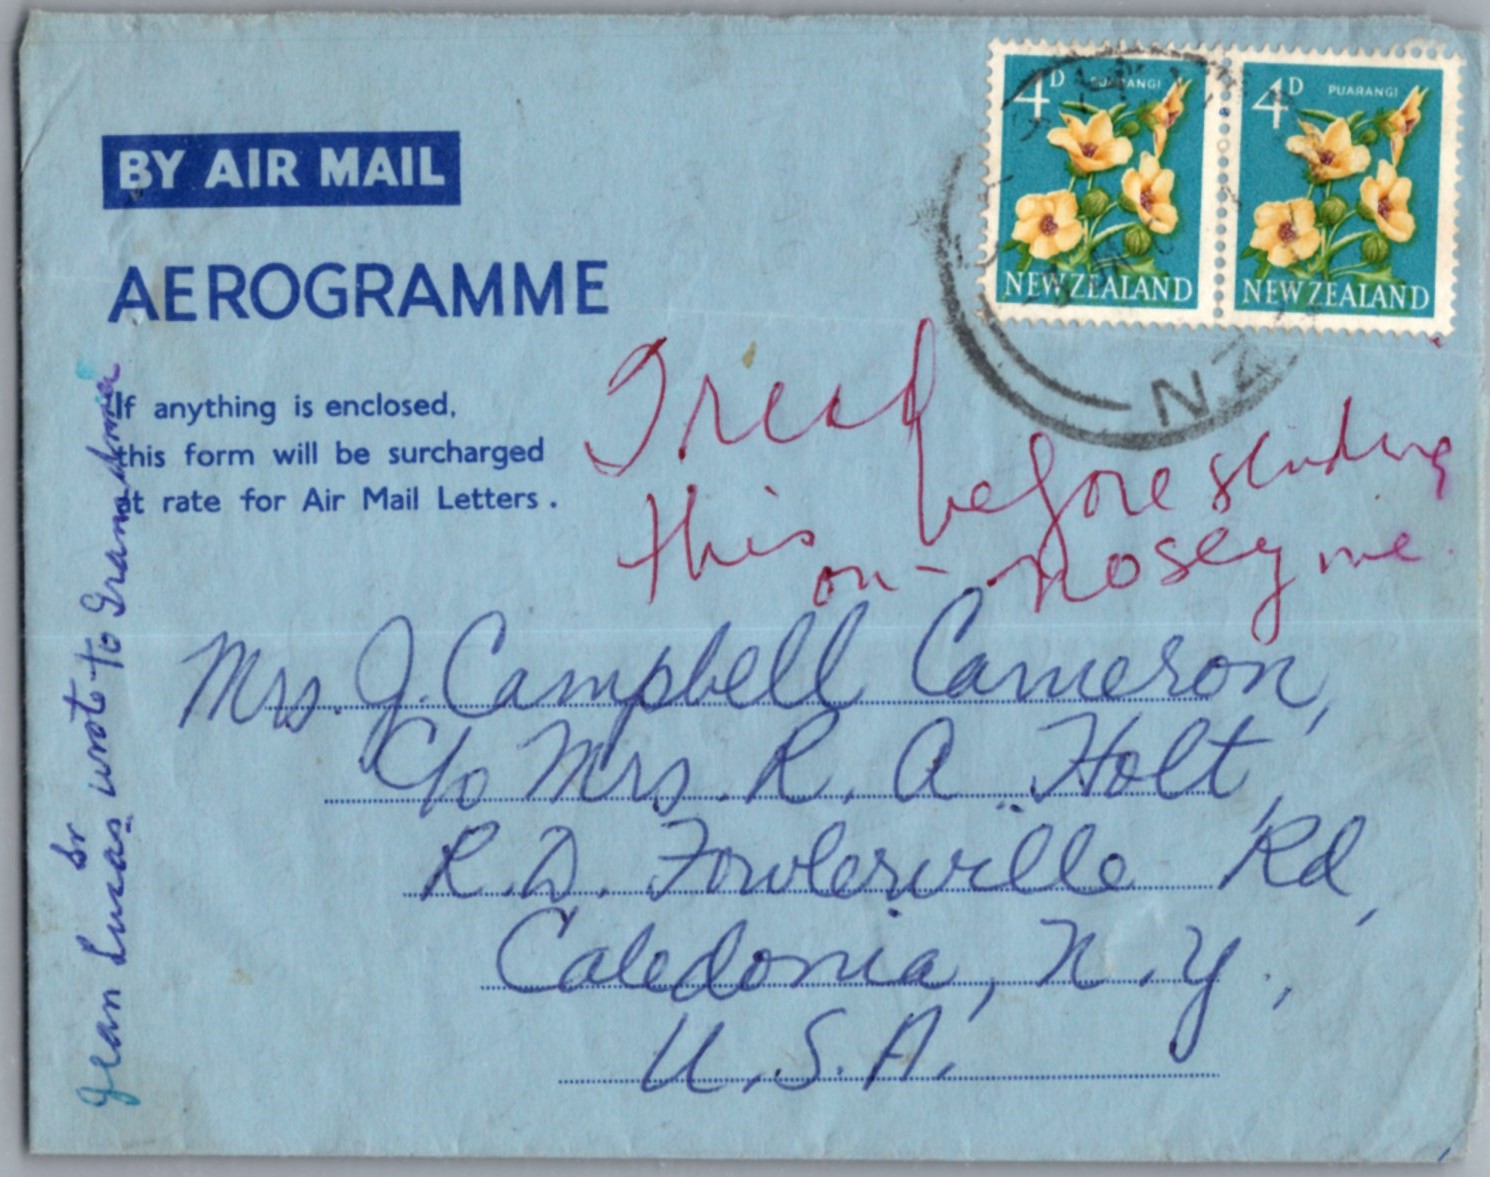 4D PUARANGI
NEW ZEALAND
4D PUARANGI
NEW ZEALAND
NZ
BY AIR MAIL
AEROGRAMME
If anything is enclosed,
this form will be surcharged
at rate for Air Mail Letters.
I read
this before sending
on - nosey me.
Mrs. J. Campbell Cameron,
c/o Mrs. R. A. Holt,
R.D. Fowlerville Rd,
Caledonia, N.Y.,
U.S.A.
Jean Lucas Sr wrote to Grandma